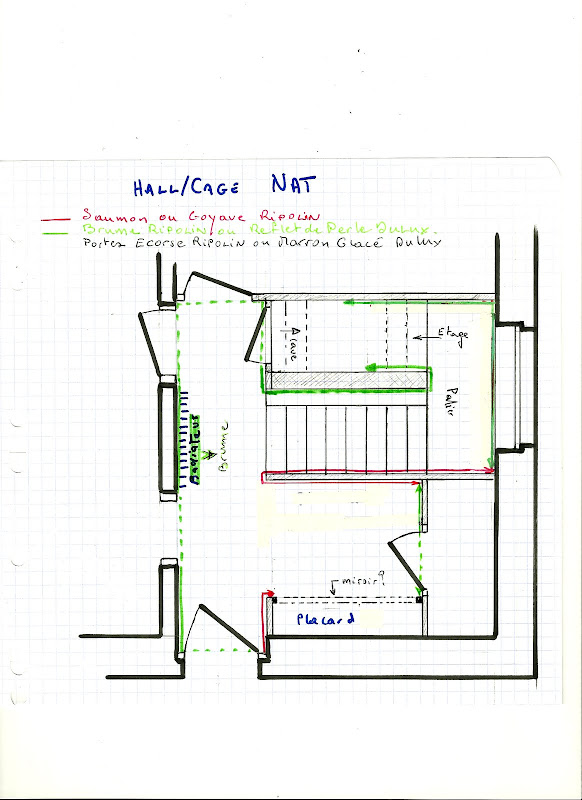 HALL/CAGE NAT
Saumon ou Goyave Ripolin
Brume Ripolin ou Reflet de Perle Dulux.
Portes Ecorse Ripolin ou Marron Glacé Dulux
Etage
Palier
Brume
miroir?
Placard